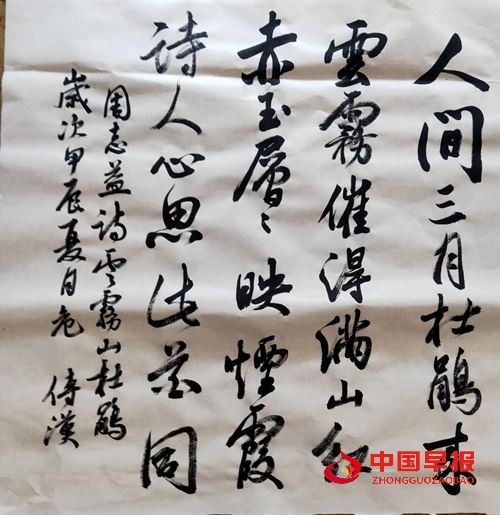 人間三月杜鵑来
雲霧催得满山红
赤玉層〻映煙霞
诗人心思此花同
周志益诗雲霧山杜鵑
歲次甲辰夏日危
中国早报
ZHONGGUOZAOBAO